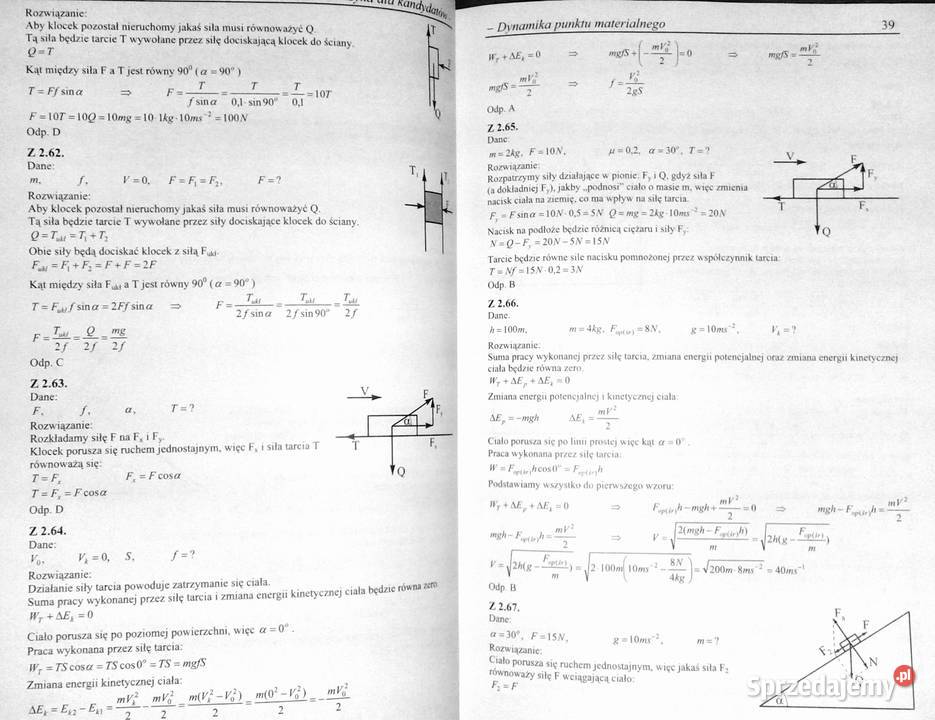 Rozwiązanie:
Aby klocek pozostał nieruchomy jakaś siła musi równoważyć Q.
Tą siła będzie tarcie T wywołane przez siłę dociskającą klocek do ściany.
Q = T
Kąt między siła F a T jest równy 90⁰ ( α = 90° )
T = Ff sin α ⇒ F = T / (f sin α) = T / (0,1· sin 90°) = T / 0,1 = 10T
F = 10T = 10Q = 10mg = 10· 1kg ·10ms⁻² = 100N
Odp. D
Z 2.62.
Dane:
m, f, V = 0, F = F₁ = F₂, F = ?
Rozwiązanie:
Aby klocek pozostał nieruchomy jakaś siła musi równoważyć Q.
Tą siła będzie tarcie T wywołane przez siły dociskające klocek do ściany.
Q = Tukł = T₁ + T₂
Obie siły będą dociskać klocek z siłą Fukł.
Fukł = F₁ + F₂ = F + F = 2F
Kąt między siła Fukł a T jest równy 90⁰ ( α = 90° )
T = Fukł f sin α = 2Ff sin α ⇒ F = Tukł / (2f sin α) = Tukł / (2f sin 90°) = Tukł / 2f
F = Tukł / 2f = Q / 2f = mg / 2f
Odp. C
Z 2.63.
Dane:
F, f, α, T = ?
Rozwiązanie:
Rozkładamy siłę F na Fx i Fy.
Klocek porusza się ruchem jednostajnym, więc Fx i siła tarcia T
równoważą się:
T = Fx Fx = F cos α
T = Fx = F cos α
Odp. D
V F Fy α T Fx Q
Z 2.64.
Dane:
V₀, Vk = 0, S, f = ?
Rozwiązanie:
Działanie siły tarcia powoduje zatrzymanie się ciała.
Suma pracy wykonanej przez siłę tarcia i zmiana energii kinetycznej ciała będzie równa zero
WT + ΔEk = 0
Ciało porusza się po poziomej powierzchni, więc α = 0° .
Praca wykonana przez siłę tarcia:
WT = TS cos α = TS cos 0° = TS = mgfS
Zmiana energii kinetycznej ciała:
ΔEk = Ek2 − Ek1 = mVk² / 2 − mV₀² / 2 = m(Vk² − V₀²) / 2 = m(0² − V₀²) / 2 = − mV₀² / 2
– Dynamika punktu materialnego 39
WT + ΔEk = 0 ⇒ mgfS + (− mV₀² / 2) = 0 ⇒ mgfS = mV₀² / 2
mgfS = mV₀² / 2 ⇒ f = V₀² / 2gS
Odp. A
Z 2.65.
Dane:
m = 2kg, F = 10N, μ = 0,2, α = 30°, T = ?
Rozwiązanie:
Rozpatrzymy siły działające w pionie. Fy i Q, gdyż siła F
(a dokładniej Fy), jakby „podnosi” ciało o masie m, więc zmienia
nacisk ciała na ziemię, co ma wpływ na siłę tarcia.
Fy = F sin α = 10N · 0,5 = 5N Q = mg = 2kg ·10ms⁻² = 20N
Nacisk na podłoże będzie różnicą ciężaru i siły Fy:
N = Q − Fy = 20N − 5N = 15N
Tarcie będzie równe sile nacisku pomnożonej przez współczynnik tarcia:
T = Nf = 15N · 0,2 = 3N
Odp. B
V F Fy α T Fx Q
Z 2.66.
Dane.
h = 100m, m = 4kg, Fop(śr) = 8N, g = 10ms⁻², Vk = ?
Rozwiązanie:
Suma pracy wykonanej przez siłę tarcia, zmiana energii potencjalnej oraz zmiana energii kinetycznej
ciała będzie równa zero.
WT + ΔEp + ΔEk = 0
Zmiana energii potencjalnej i kinetycznej ciała:
ΔEp = −mgh ΔEk = mV² / 2
Ciało porusza się po linii prostej więc kąt α = 0° .
Praca wykonana przez siłę tarcia:
W = Fop(śr)h cos 0° = Fop(śr)h
Podstawiamy wszystko do pierwszego wzoru:
WT + ΔEp + ΔEk = 0 ⇒ Fop(śr)h − mgh + mV² / 2 = 0 ⇒ mgh − Fop(śr)h = mV² / 2
mgh − Fop(śr)h = mV² / 2 ⇒ V = √(2(mgh − Fop(śr)h) / m) = √(2h(g − Fop(śr) / m))
V = √(2h(g − Fop(śr) / m)) = √(2·100m(10ms⁻² − 8N / 4kg)) = √(200m·8ms⁻²) = 40ms⁻¹
Odp. B
Z 2.67.
Dane:
α = 30°, F = 15N, g = 10ms⁻², m = ?
Rozwiązanie:
Ciało porusza się ruchem jednostajnym, więc jakaś siła F₂
równoważy siłę F wciągającą ciało:
F₂ = F
F F₂ N α
Sprzedajemy.pl